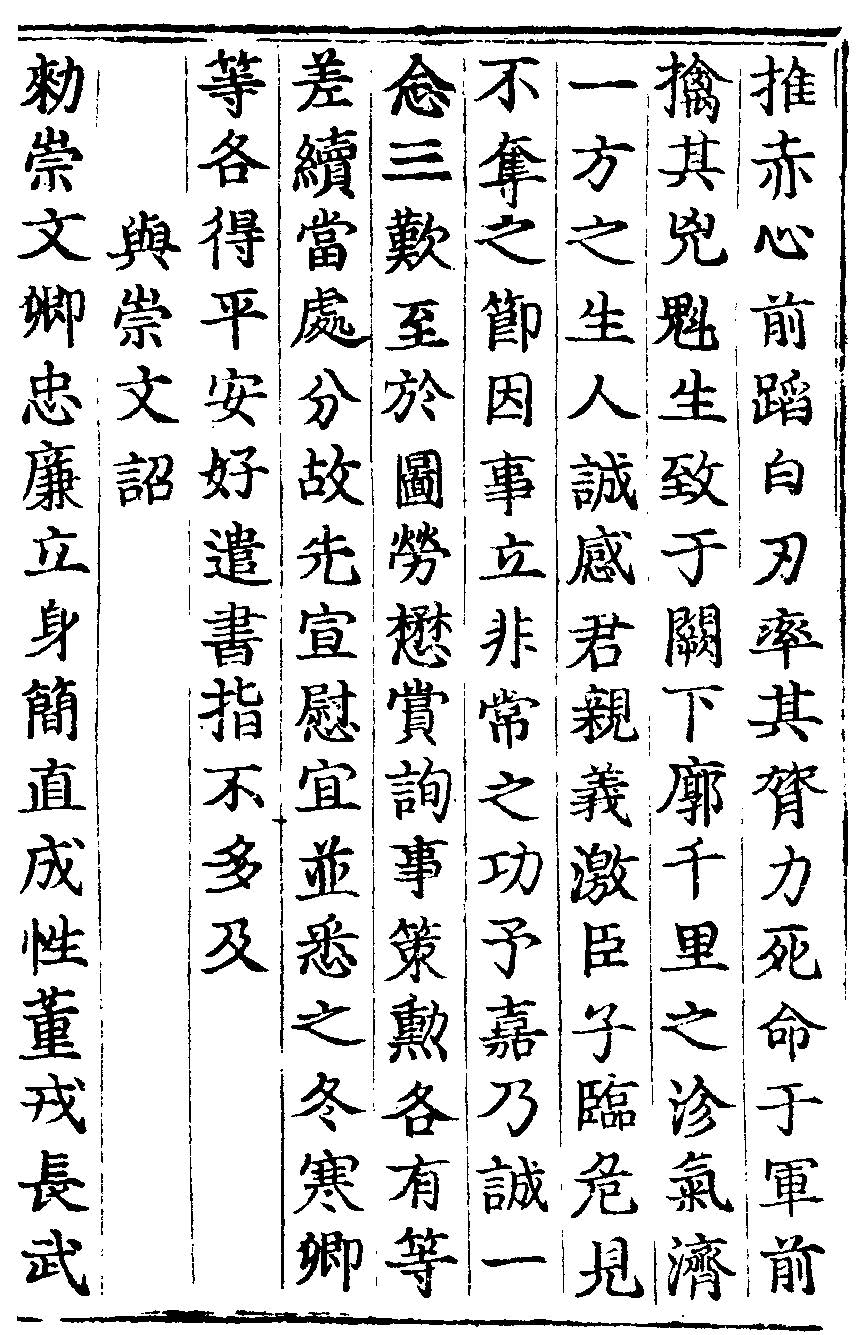 推赤心前蹈白刃率其膂力死命于軍前
擒其兇魁生致于闕下廓千里之沴氣濟
一方之生人誠感君親義激臣子臨危見
不奪之節因事立非常之功予嘉乃誠一
念三歎至於圖勞懋賞詢事策勳各有等
差續當處分故先宣慰宜並悉之冬寒卿
等各得平安好遣書指不多及
與崇文詔
勑崇文卿忠廉立身簡直成性董戎長武